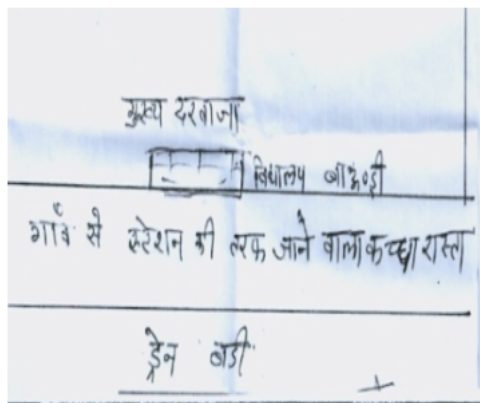 मुख्य दरवाजा
विद्यालय बाऊण्ड्री
गाँव से स्टेशन की तरफ जाने वाला कच्चा रास्ता
ड्रेन बडी